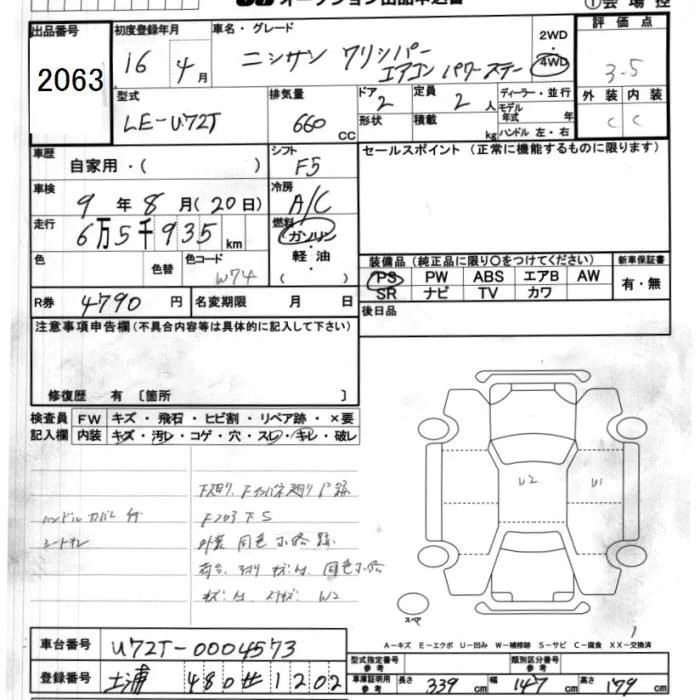 オークション出品申込書
①会場控
出品番号 2063
初度登録年月 16 4月
車名・グレード ニッサン クリッパー
エアコン パワーステー
2WD・4WD
評価点 3.5
外装 C 内装 C
型式 LE-U72T
排気量 660 CC
ドア 2 形状
定員 2人
積載 kg
ディーラー・並行
モデル年式 年
ハンドル 左・右
車歴 自家用・( )
シフト F5
セールスポイント (正常に機能するものに限ります)
車検 9年8月(20日)
冷房 A/C
走行 6万5千935km
燃料 ガソリン・軽油 ( )
色 色替 色コード W74
装備品 (純正品に限り○をつけてください)
PS PW ABS エアB AW
SR ナビ TV カワ
新車保証書 有・無
R券 4790円
名変期限 月 日
後日品
注意事項申告欄 (不具合内容等は具体的に記入して下さい)
修復歴 有 〔箇所 〕
検査員記入欄
FW キズ・飛石・ヒビ割・リペア跡・×要
内装 キズ・汚レ・コゲ・穴・スレ・キレ・破レ
ハンドルカバー付
シートキレ
外装 同色ホ修跡
U2
U1
スペア
A-キズ E-エクボ U-凹み W-補修跡 S-サビ C-腐食 XX-交換済
車台番号 U72T-0004573
登録番号 土浦 480 せ 1202
型式指定番号 参考
類別区分番号 参考
車庫証明用 参考 長さ 339cm 幅 147cm 高さ 179cm